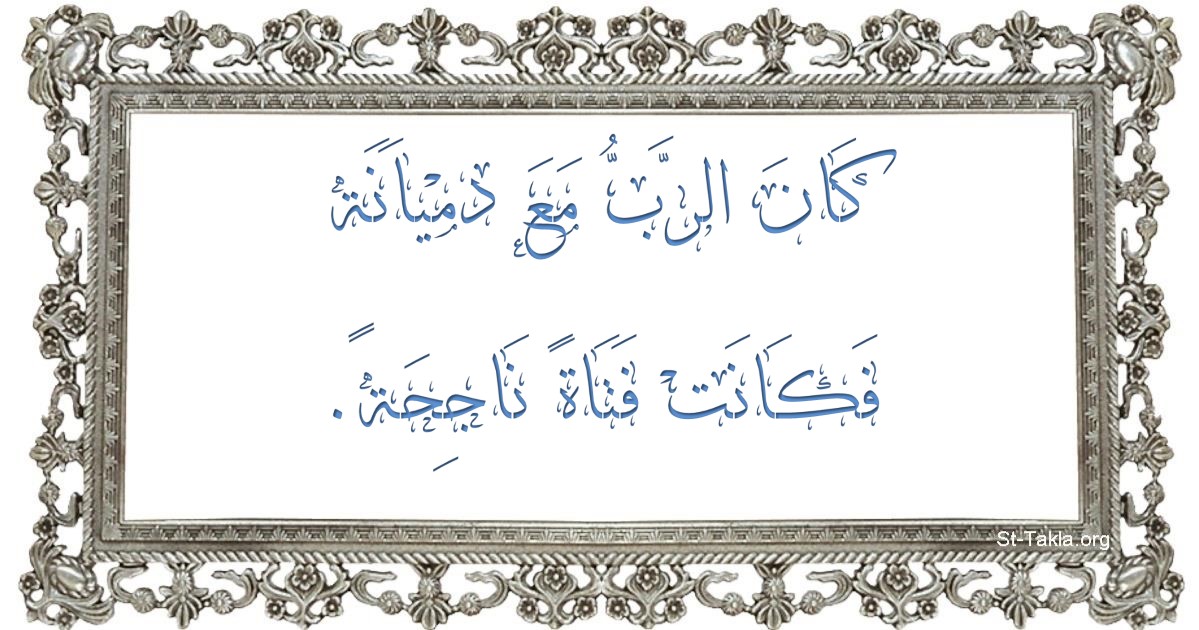 كَانَ الرَّبُّ مَعَ دميَانَة
فَكَانَت فَتَاةً نَاجِحَةً.
St-Takla.org